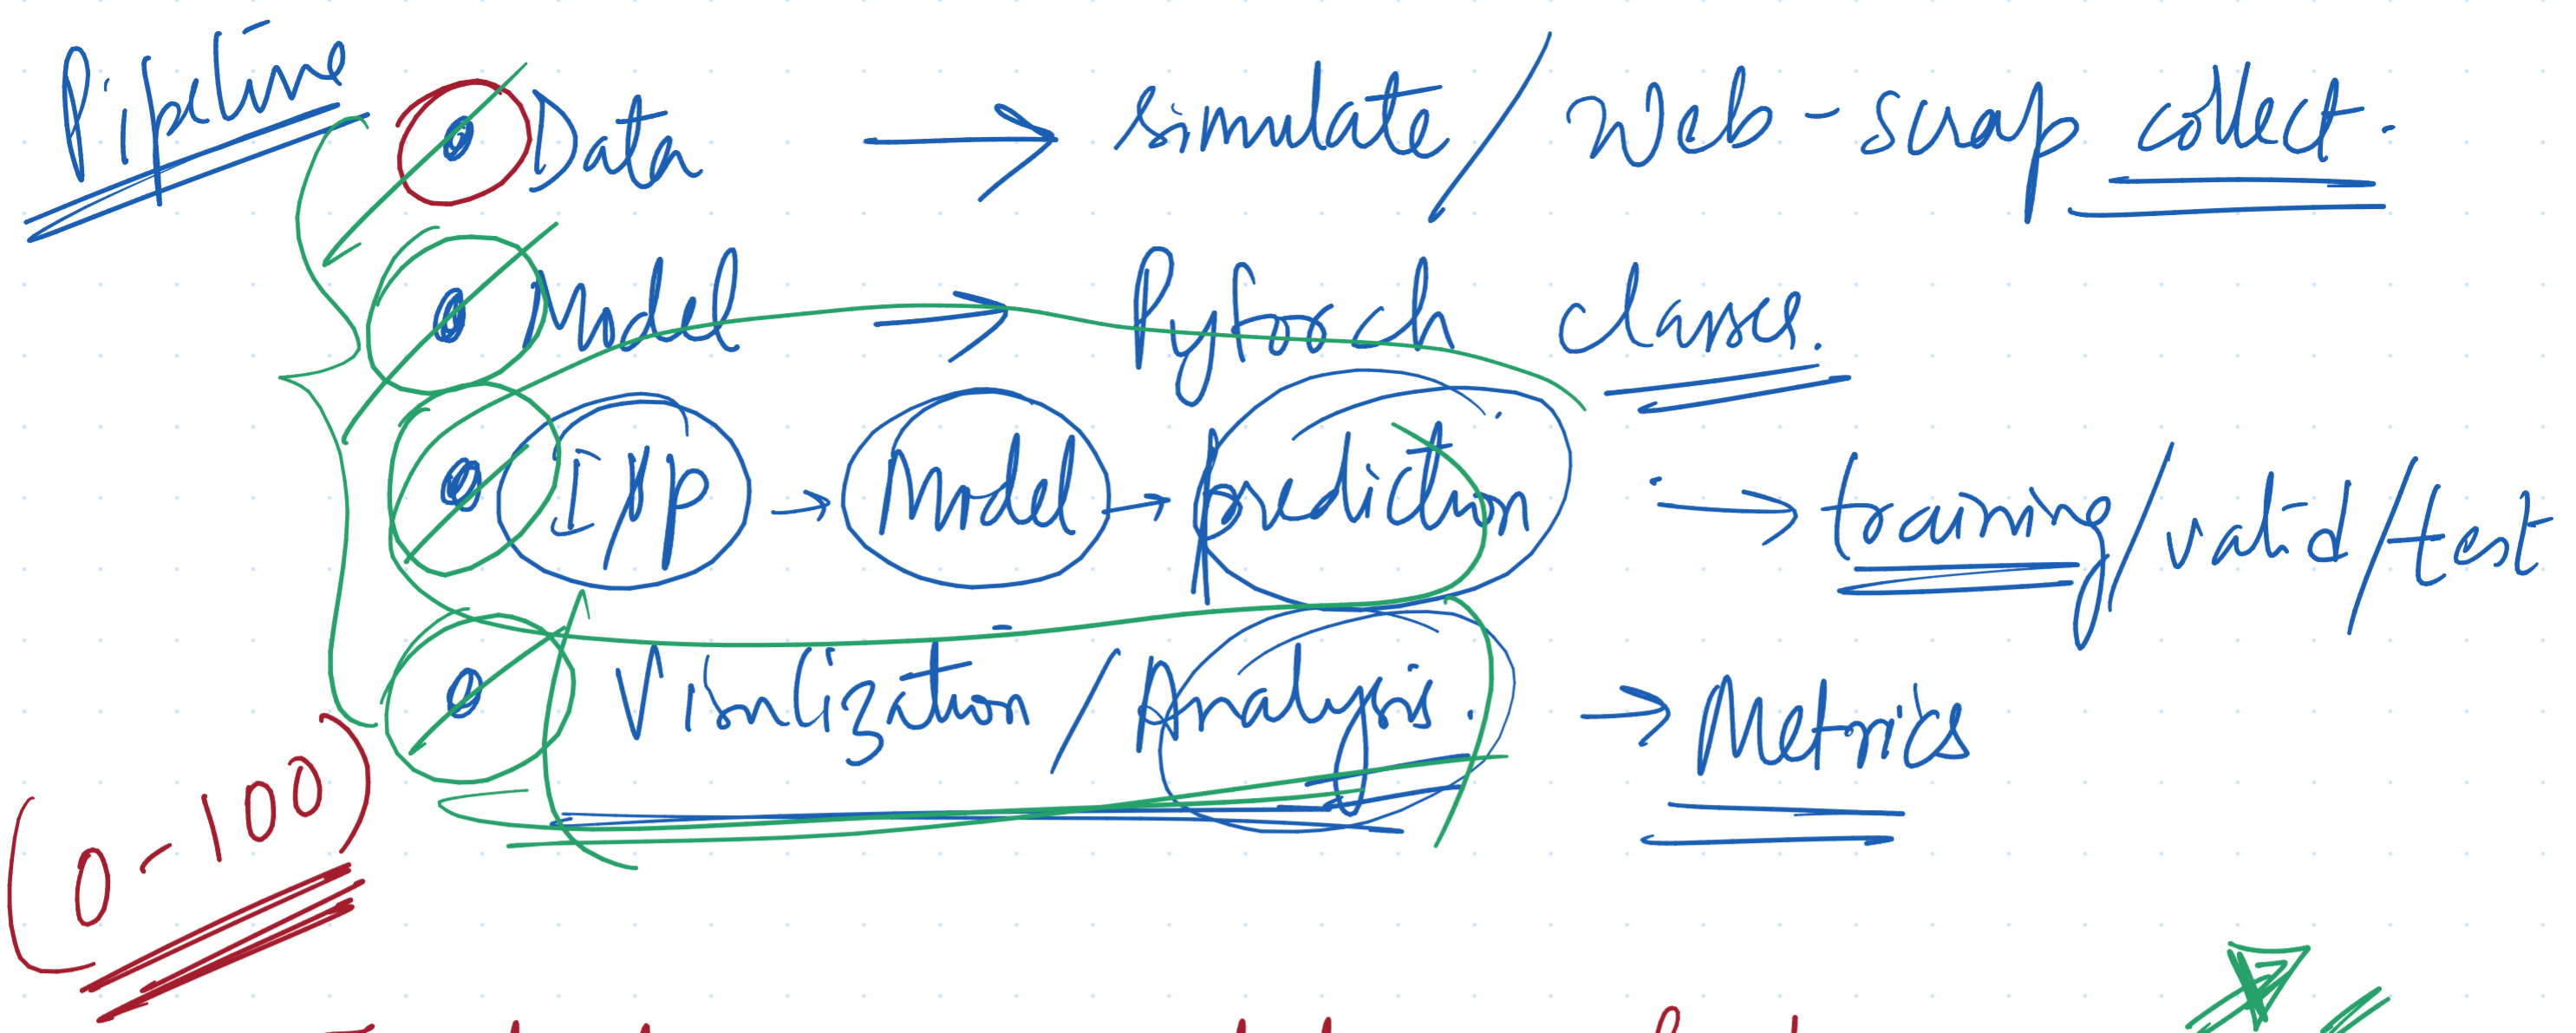 Pipeline
Data → simulate / Web-scrap collect.
Model → Pytorch classes.
I/p → Model → prediction → training/valid/test
Visulization / Analysis. → Metrics
(0-100)